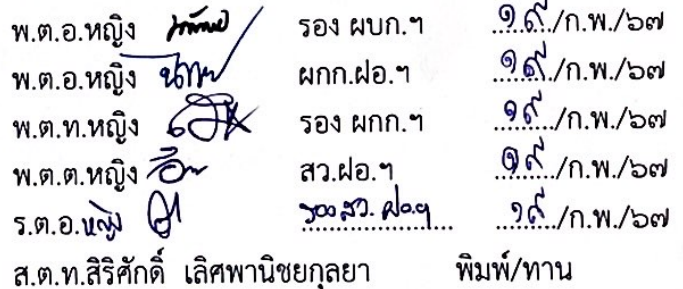 พ.ต.อ.หญิง รอง ผบก.ฯ ๑๙/ก.พ./๖๗
พ.ต.อ.หญิง ผกก.ฝอ.ฯ ๑๙/ก.พ./๖๗
พ.ต.ท.หญิง รอง ผกก.ฯ ๑๙/ก.พ./๖๗
พ.ต.ต.หญิง สว.ฝอ.ฯ ๑๙/ก.พ./๖๗
ร.ต.อ.หญิง รองสว.ฝอ.ฯ ๑๙/ก.พ./๖๗
ส.ต.ท.สิริศักดิ์ เลิศพานิชยกุลยา พิมพ์/ทาน